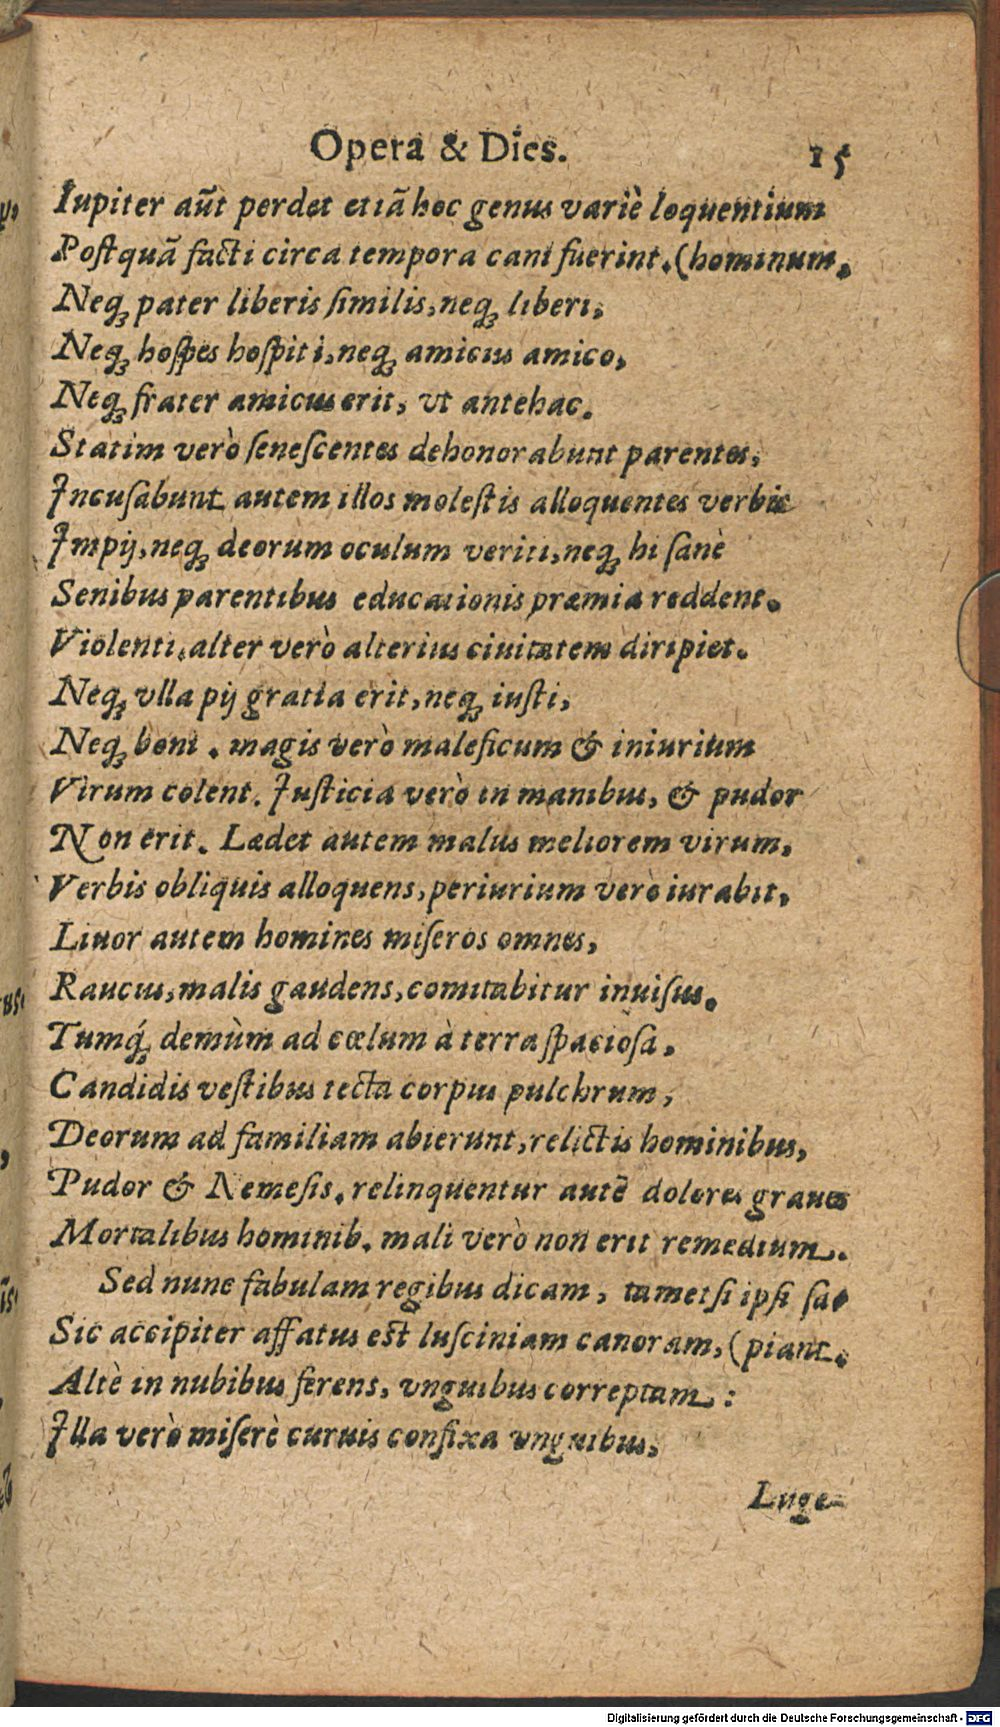 Opera & Dies. 15
Iupiter aūt perdet etiā hoc genus variè loquentium
Postquā facti circa tempora cani fuerint. (hominum.
Neq; pater liberis similis, neq; liberi,
Neq; hospes hospiti, neq; amicus amico,
Neq; frater amicus erit, vt antehac.
Statim verò senescentes dehonorabunt parentes,
Incusabunt autem illos molestis alloquentes verbis
Impij, neq; deorum oculum veriti, neq; hi sanè
Senibus parentibus educationis præmia reddent.
Violenti, alter verò alterius ciuitatem diripiet.
Neq; vlla pij gratia erit, neq; iusti,
Neq; boni. magis verò maleficum & iniurium
Virum colent. Iusticia verò in manibus, & pudor
Non erit. Lædet autem malus meliorem virum,
Verbis obliquis alloquens, periurium verò iurabit,
Liuor autem homines miseros omnes,
Raucus, malis gaudens, comitabitur inuisus.
Tumq́; demùm ad cœlum à terra spaciosa,
Candidis vestibus tecta corpus pulchrum,
Deorum ad familiam abierunt, relictis hominibus,
Pudor & Nemesis. relinquentur autē dolores graues
Mortalibus hominib. mali verò non erit remedium.
Sed nunc fabulam regibus dicam, tametsi ipsi sa-
Sic accipiter affatus est lusciniam canoram, (piant.
Altè in nubibus ferens, vnguibus correptam:
Illa verò miserè curuis confixa vnguibus,
Luge-
Digitalisierung gefördert durch die Deutsche Forschungsgemeinschaft - DFG